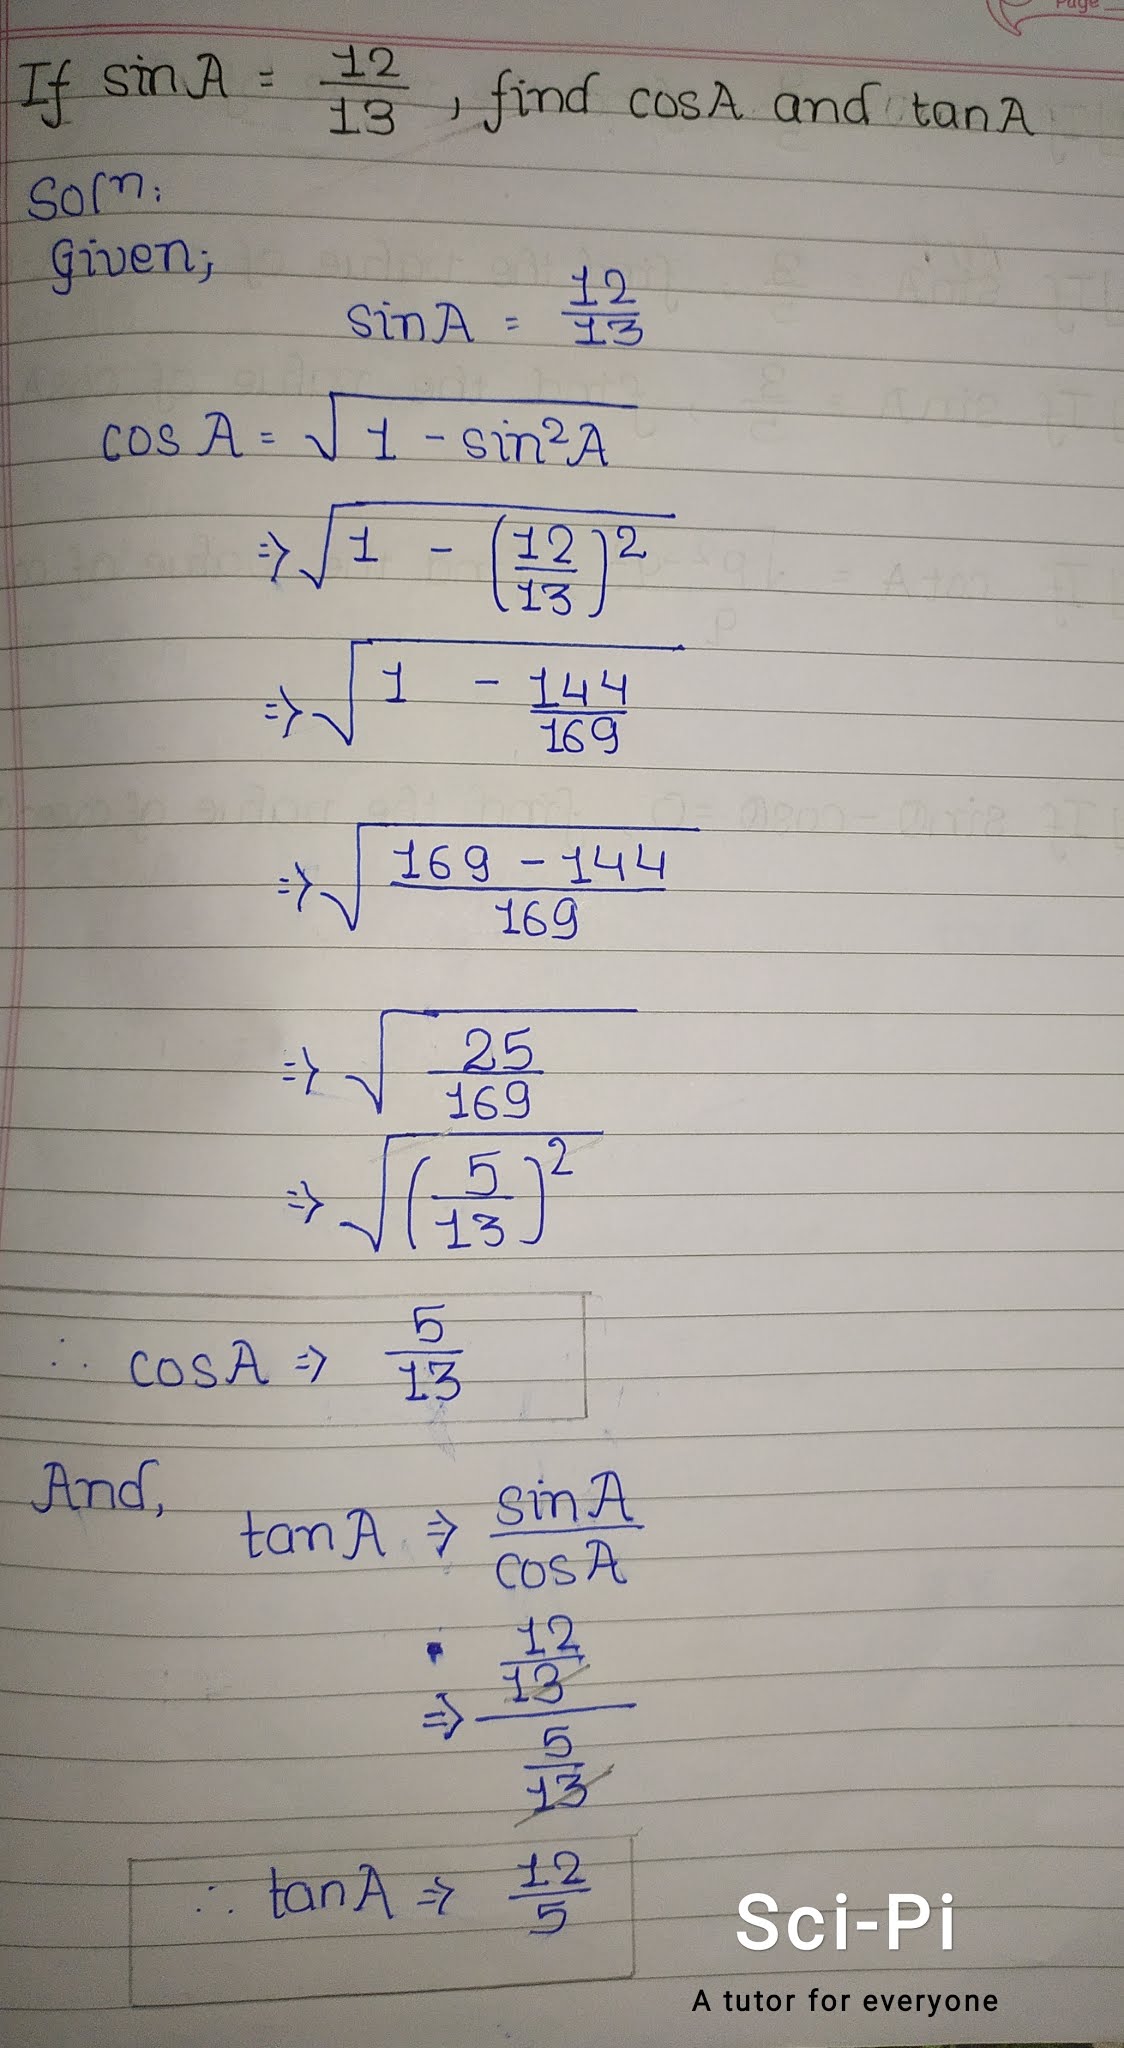 Page
If sinA = 12/13, find cosA and tanA
Soln:
Given;
sinA = 12/13
cosA = √(1 - sin²A)
⇒ √(1 - (12/13)²)
⇒ √(1 - 144/169)
⇒ √((169 - 144)/169)
⇒ √(25/169)
⇒ √((5/13)²)
∴ cosA ⇒ 5/13
And,
tanA ⇒ sinA/cosA
⇒ (12/13)/(5/13)
∴ tanA ⇒ 12/5
Sci-Pi
A tutor for everyone